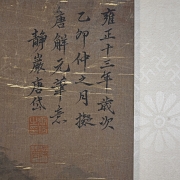 雍正十三年歲次
乙卯仲之月擬
唐解元筆意
靜巖唐岱